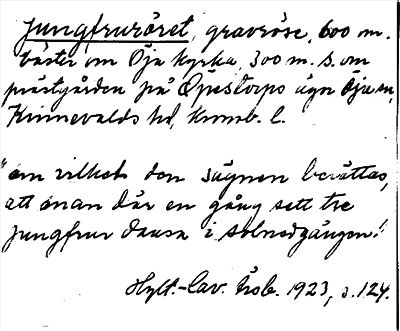 Jungfruröret, gravröse, 600 m.
väster om Öja kyrka, 300 m. s. om
prästgården på Öjestorps ägor Öja sn,
Kinnevalds hd, Kronob. l.
"om vilket den sägnen berättas,
att man där en gång sett tre
jungfrur dansa i solnedgången."
Hylt.-Cav. Årsb. 1923, s. 124.